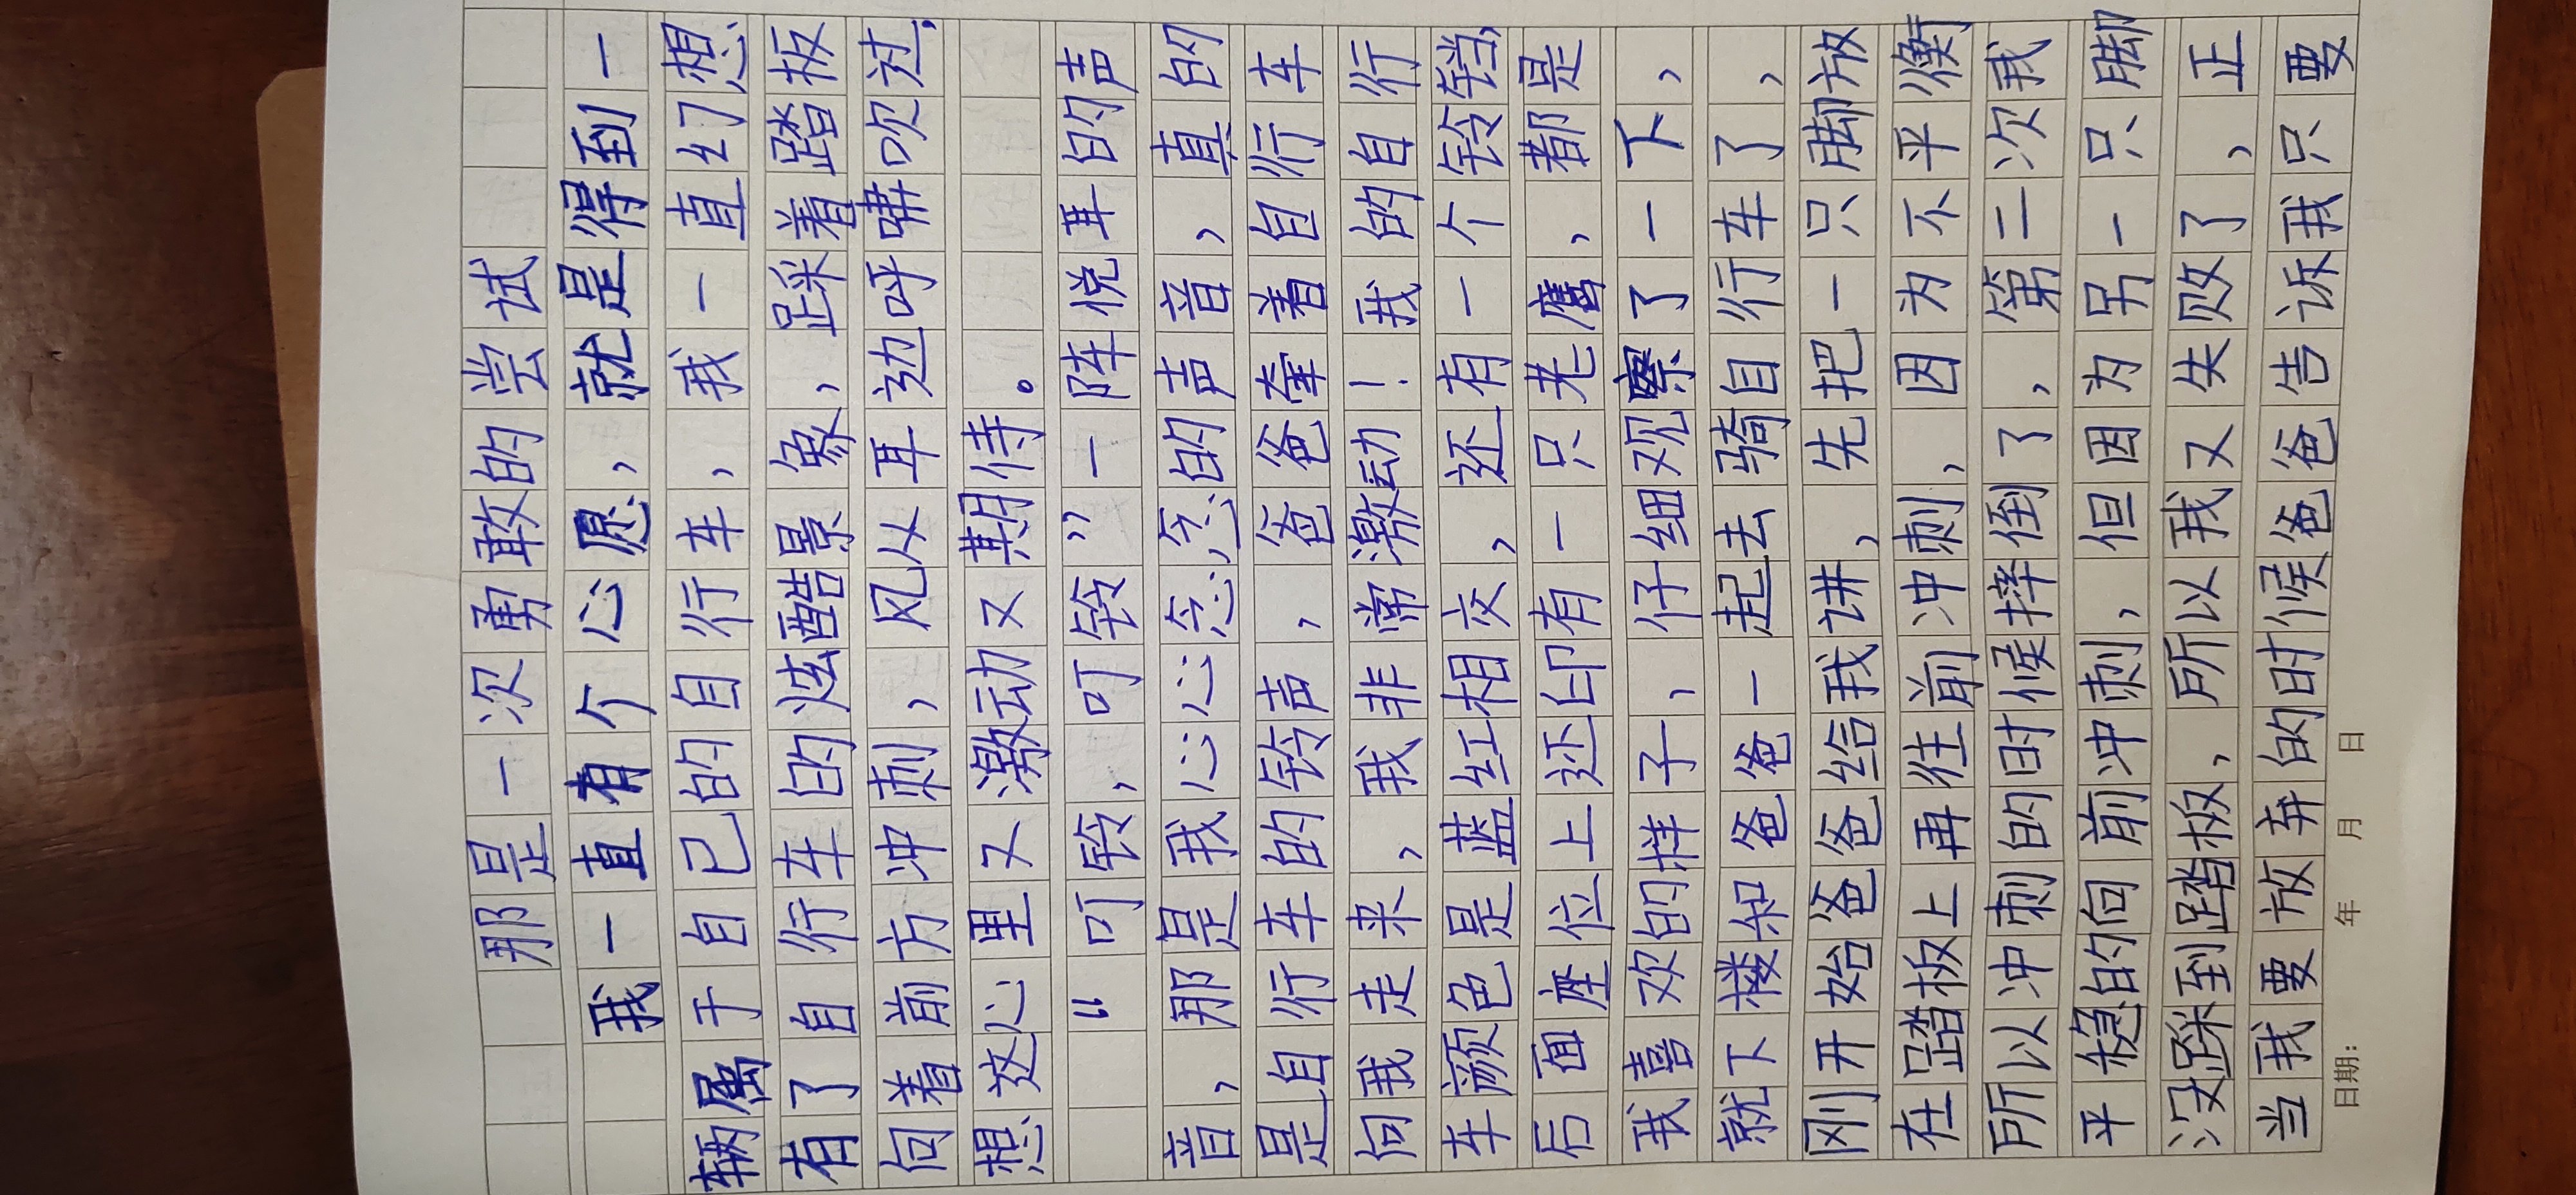 那是一次勇敢的尝试
我一直有个心愿，就是得到一
辆属于自己的自行车，我一直幻想
有了自行车的炫酷景象，踩着踏板
向着前方冲刺，风从耳边呼啸吹过，
想这心里又激动又期待。
“叮铃，叮铃”一阵悦耳的声
音，那是我心心念念的声音，直的
是自行车的铃声，爸爸牵着自行车
向我走来，我非常激动！我的自行
车颜色是蓝红相交，还有一个铃铛，
后面座位上还印有一只老鹰，都是
我喜欢的样子，仔细观察了一下，
就下楼和爸爸一起去骑自行车了，
刚开始爸爸给我讲，先把一只脚放
在踏板上再往前冲刺，因为不平衡
所以冲刺的时候摔倒了，第二次我
平稳的向前冲刺，但因为另一只脚
没踩到踏板，所以我又失败了，正
当我要放弃的时候爸爸告诉我只要
日期： 年 月 日